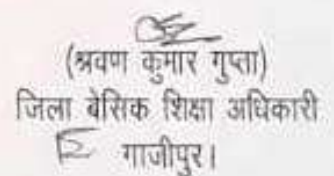 (श्रवण कुमार गुप्ता)
जिला बेसिक शिक्षा अधिकारी
गाजीपुर।